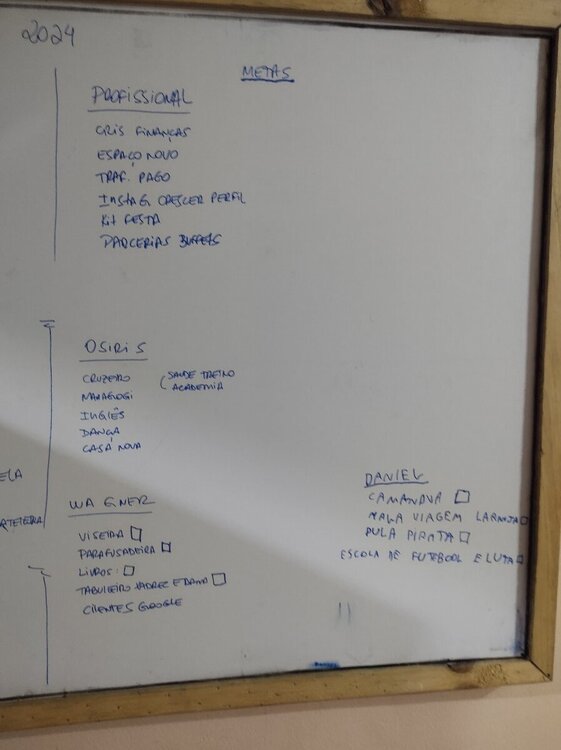 2024
METAS
PROFISSIONAL
CRIS FINANÇAS
ESPAÇO NOVO
TRAF. PAGO
INSTAG. CRESCER PERFIL
KIT FESTA
PARCERIAS BUFFETS
OSIRIS
CRUZEIRO
(SAUDE TREINO
ACADEMIA
MARAGOGI
INGLÊS
DANÇA
CASA NOVA
ELA
WAGNER
VISEIRA
PARAFUSADEIRA
LIVROS:
TABULEIRO XADREZ E DAMA
CLIENTES GOOGLE
DANIEL
CAMA NOVA
MALA VIAGEM LARANJA
PULA PIRATA
ESCOLA DE FUTEBOOL E LUTA